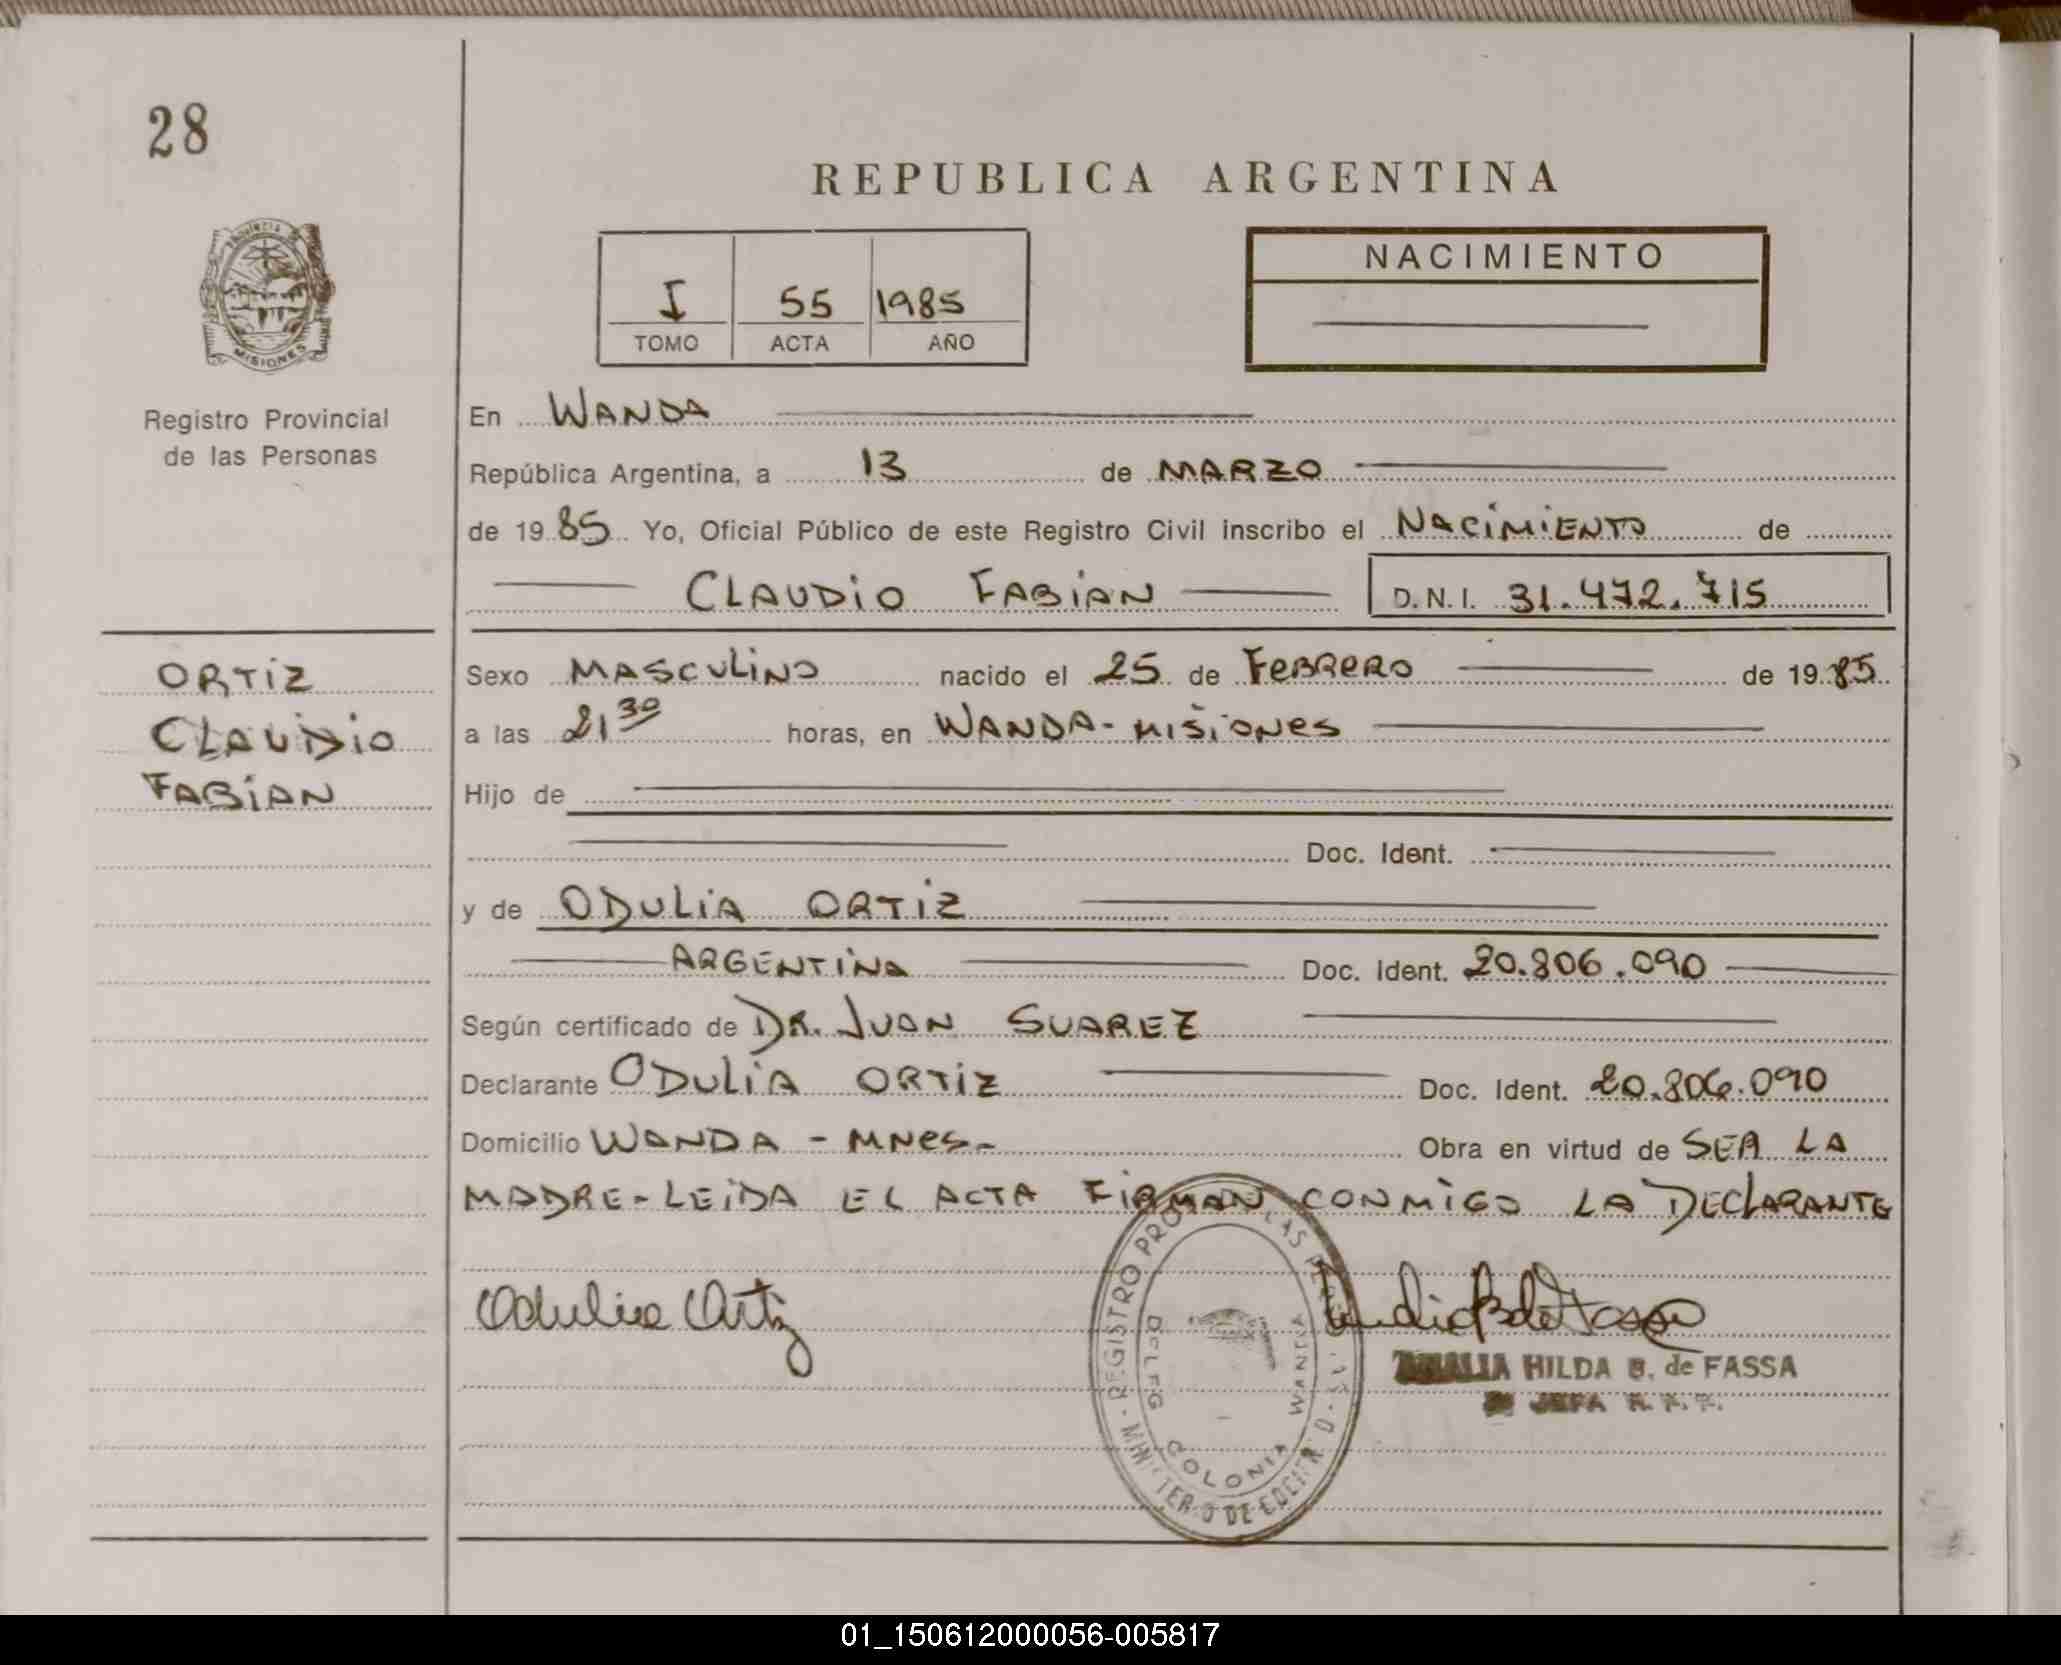 28
REPUBLICA ARGENTINA
PROVINCIA DE
MISIONES
Registro Provincial
de las Personas
I 55 1985
TOMO ACTA AÑO
NACIMIENTO
En WANDA
República Argentina, a 13 de MARZO
de 1985 Yo, Oficial Público de este Registro Civil inscribo el NACIMIENTO de
CLAUDIO FABIAN D.N.I. 31.472.715
ORTIZ
CLAUDIO
FABIAN
Sexo MASCULINO nacido el 25 de FEBRERO de 1985
a las 21 30 horas, en WANDA - MISIONES
Hijo de
Doc. Ident.
y de ODULIA ORTIZ
ARGENTINA Doc. Ident. 20.806.090
Según certificado de DR. JUAN SUAREZ
Declarante ODULIA ORTIZ Doc. Ident. 20.806.090
Domicilio WANDA - MNES- Obra en virtud de SER LA
MADRE-LEIDA EL ACTA FIRMAN CONMIGO LA DECLARANTE
Odulia Ortiz
REGISTRO LAS
DELEG
COLONIA
WANDA
HILDA B. de FASSA
JEFA
01_150612000056-005817